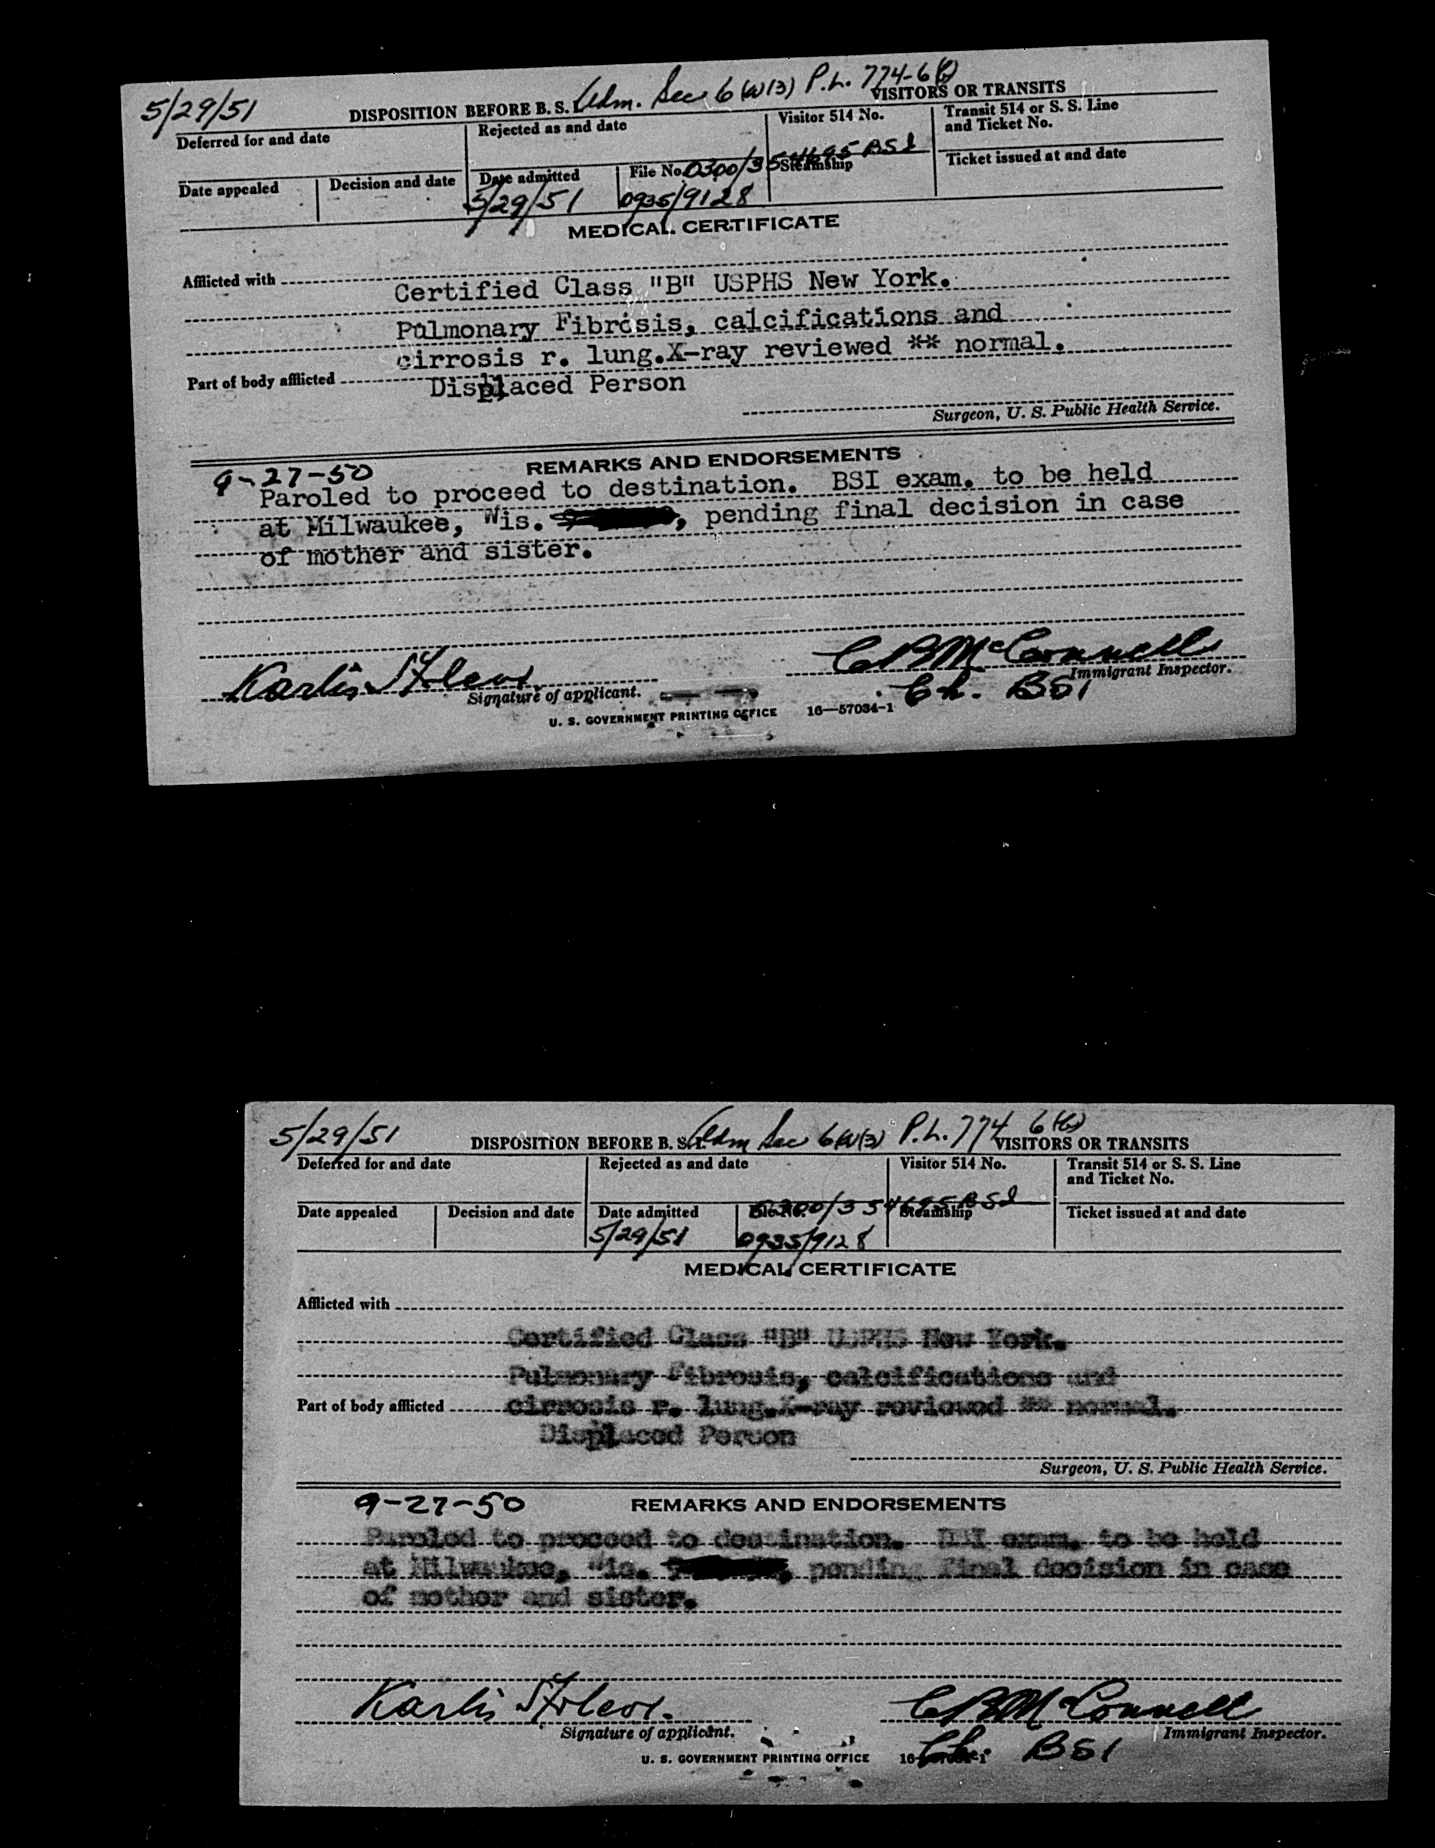 5/29/51 DISPOSITION BEFORE B. S. I. Adm. Sec 6(a)(3) P.L. 774-6(b) VISITORS OR TRANSITS
Deferred for and date
Rejected as and date
Visitor 514 No.
Transit 514 or S. S. Line
and Ticket No.
Date appealed
Decision and date
Date admitted
5/29/51
File No. 0300/354695 BSI
0935/9128
Steamship
Ticket issued at and date
MEDICAL CERTIFICATE
Afflicted with
Certified Class "B" USPHS New York.
Pulmonary Fibrosis, calcifications and
cirrosis r. lung.X-ray reviewed ** normal.
Part of body afflicted
Displaced Person
Surgeon, U. S. Public Health Service.
9-27-50 REMARKS AND ENDORSEMENTS
Paroled to proceed to destination. BSI exam. to be held
at Milwaukee, Wis. , pending final decision in case
of mother and sister.
Karlis
CBMcConnell
Signature of applicant.
Immigrant Inspector.
Ch. BSI
U. S. GOVERNMENT PRINTING OFFICE 16—57034-1
5/29/51 DISPOSITION BEFORE B. S. I. Adm Sec 6(a)(3) P.L. 774 6(b) VISITORS OR TRANSITS
Deferred for and date
Rejected as and date
Visitor 514 No.
Transit 514 or S. S. Line
and Ticket No.
Date appealed
Decision and date
Date admitted
5/29/51
File No. 0300/354695 BSI
0935/9128
Steamship
Ticket issued at and date
MEDICAL CERTIFICATE
Afflicted with
Certified Class "B" USPHS New York.
Pulmonary Fibrosis, calcifications and
Part of body afflicted cirrosis r. lung.X-ray reviewed ** normal.
Displaced Person
Surgeon, U. S. Public Health Service.
9-27-50 REMARKS AND ENDORSEMENTS
Paroled to proceed to destination. BSI exam. to be held
at Milwaukee, Wis. , pending final decision in case
of mother and sister.
Karlis
CBMcConnell
Signature of applicant.
Immigrant Inspector.
Ch. BSI
U. S. GOVERNMENT PRINTING OFFICE